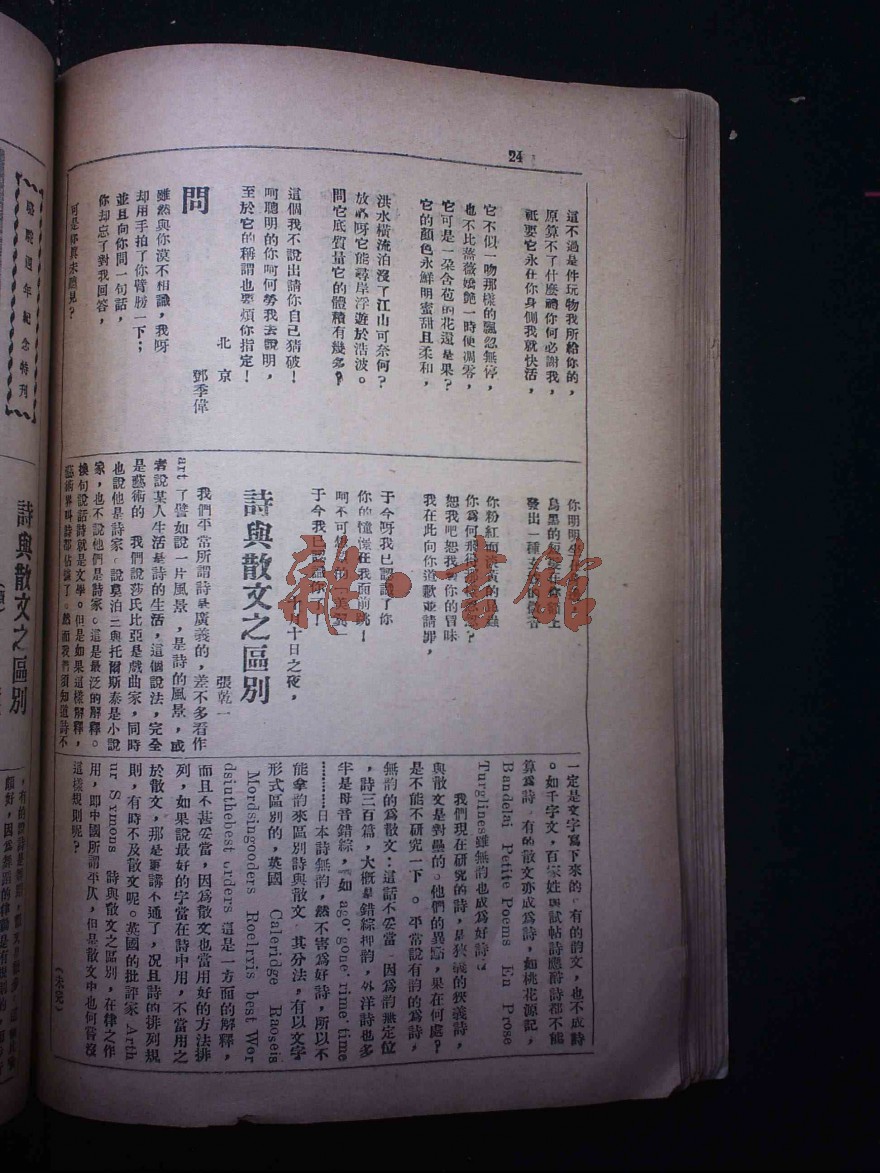 24
這不過是件玩物我所給你的，
原算不了什麼禮你何必謝我，
祗要它永在你身側我就快活，
它不似一吻那樣的飄忽無停，
也不比薔薇嬌艶一時便凋零，
它可是一朵含苞的花還是果？
它的顏色永鮮明蜜甜且柔和，
洪水橫流泊沒了江山可奈何？
放心呀它能尋岸浮遊於浩波。
問它底質量它的體積有幾多？
這個我不說出請你自已猜破！
呵聰明的你呵何勞我去說明，
至於它的稱謂也要煩你指定！
北京
鄧季偉
問
雖然與你漠不相識，我呀
却用手拍了你臂膀一下；
並且向你問一句話，
你却忘了對我回答，
可是你眞未聽見？
你明明生
烏黑的
發出一種
你粉紅面
你爲何
恕我吧恕我
我在此向你道歉並請罪，
于今呀我已認識了你
你的憧憬在我面前跳！
呵不可
于今我已
十日之夜，
詩與散文之區別
張乾一
我們平常所謂詩是廣義的，差不多看作
art 了譬如說一片風景，是詩的風景，或
者說某人生活是詩的生活，這個說法，完全
是藝術的 我們說莎氏比亞是戲曲家，同時
也說他是詩家。說莫泊三與托爾斯泰是小說
家，也不說他們是詩家。這是最泛的解釋。
換句說話詩就是文學。但是如果這樣解釋，
藝術界與詩都佔據了。然而我們須知道詩不
一定是文字寫下來的。有的韵文，也不成詩
。如千字文，百家姓與試帖詩應酬詩都不能
算爲詩 有的散文亦成爲詩，如桃花源記，
Bandelai Petite Poems En Prose
Turglines雖無韵也成爲好詩。
我們現在研究的詩，是狹義的狹義詩，
與散文是對壘的。他們的異點，果在何處？
是不能不研究一下。平常說有韵的爲詩，
無韵的爲散文：這話不妥當 因爲韵無定位
，詩三百篇，大概是錯綜押韵，外洋詩也多
半是母音錯綜，如 ago' gone' rime' time
…………日本詩無韵，然不害爲好詩，所以不
能拿韵來區別詩與散文 其分法，有以文字
形式區別的，英國 Caleridge Raoseis
Mordsingooders Roelrxis best Wor
dsinthebest orders 這是一方面的解釋，
而且不甚妥當，因爲散文也當用好的方法排
列，如果說最好的字當在詩中用，不當用之
於散文，那是更講不通了，况且詩的排列規
則，有時不及散文呢。英國的批評家 Arth
ur Symons 詩與散文之區別，在律之作
用，即中國所謂平仄，但是散文中也何嘗沒
這樣規則呢？
（未完）
週年紀念特刊
詩與散文之區別
龍·書館